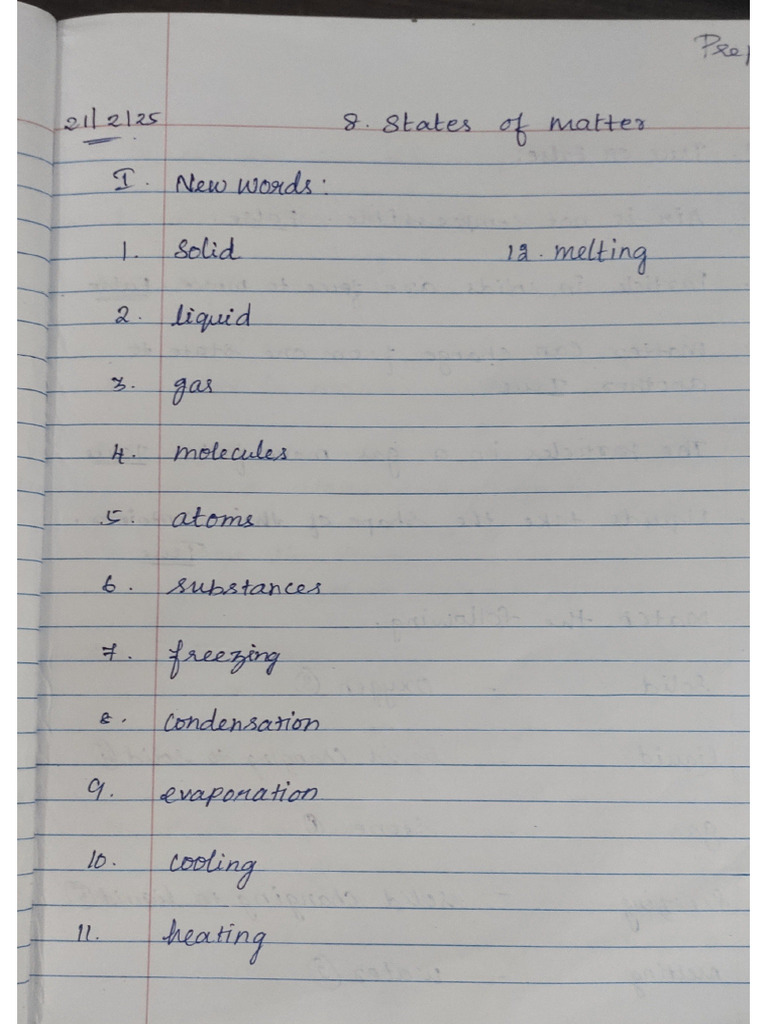 21/2/25 8. States of matter
I. New words:
1. Solid 12. melting
2. liquid
3. gas
4. molecules
5. atoms
6. substances
7. freezing
8. condensation
9. evaporation
10. cooling
11. heating